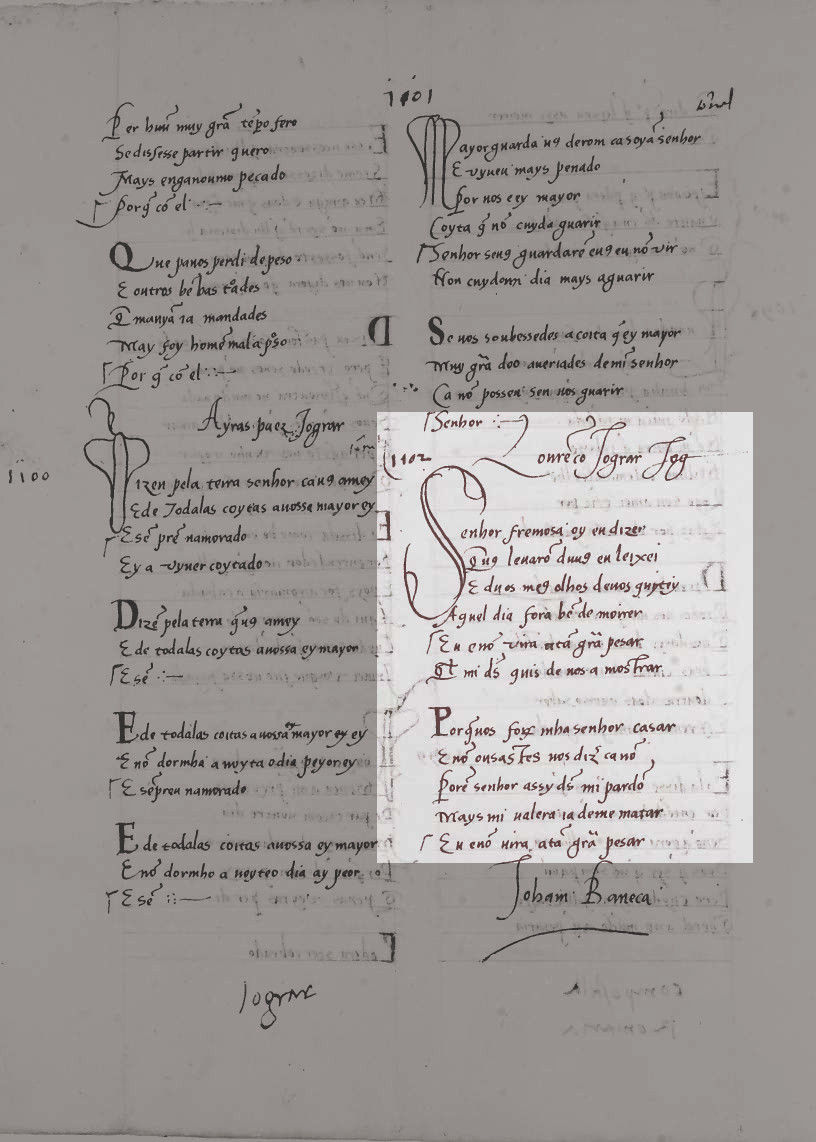 1101
Per huũ muy grã tẽpo fero
Se disesse partir quero
Mays enganoumo pecado
Porq̃ cõ el
Que panos perdi de peso
E outros bẽ bastados
E manyã ia mandades
May foy homẽ mal apso
Por q̃ cõ el
Ayras paez Jograr
1100
Dizen pela terra senhor ca uꝯ amey
E de Todalas coytas a uossa mayor ey
E sẽ prẽ namorado
Ey a vyuer coytado
Dizẽ pela terra q̃ uꝯ amey
E de todalas coytas a uossa ey mayor
E sẽ
E de todalas coitas a uossa mayor ey ey
E nõ dormho a noyta o dia peyor ey
E sẽpreu namorado
E de todalas coitas a uossa ey mayor
E nõ dormho a noyteo dia ay peor
E sẽ
Jograr
Mayor guarda uꝯ derom ca soyã senhor
E vyueu mays penado
Por uos e ey mayor
Coyta q̃ nõ cuyda guarir
Senhor se uꝯ guardarẽ euꝯ eu nõ vir
Non cuydem dia mays a guarir
Se uos soubessedes a coita q̃ ey mayor
Muy grã doo aueriades de mĩ senhor
Ca nõ posseu sen uos guarir
Senhor
1102
Lourẽco Jograr Jog
Senhor fremosa oy eu dizer
Que uꝯ leuarõ duuꝯ eu leixei
E duos meꝯ olhos de uos quytey
Aquel dia fora bẽ de moirer
Eu e nõ vira atã grã pesar
Qual mi ds̃ quis de uos a mostrar
Porq̃ uos forõ mha senhor casar
E nõ ousastes uos diz̃ ca nõ
Porẽ senhor assy ds̃ mi pardõ
Mays mi ualera ia de me matar
Eu e nõ uira atã grã pesar
Joham Baueca